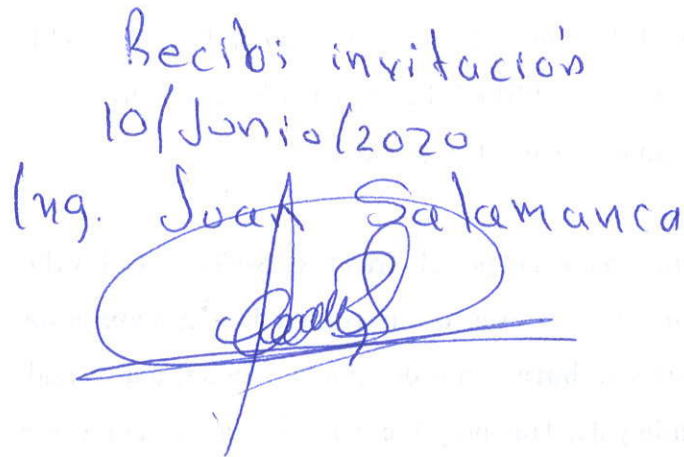 Recibi invitación
10/Junio/2020
Ing. Juan Salamanca